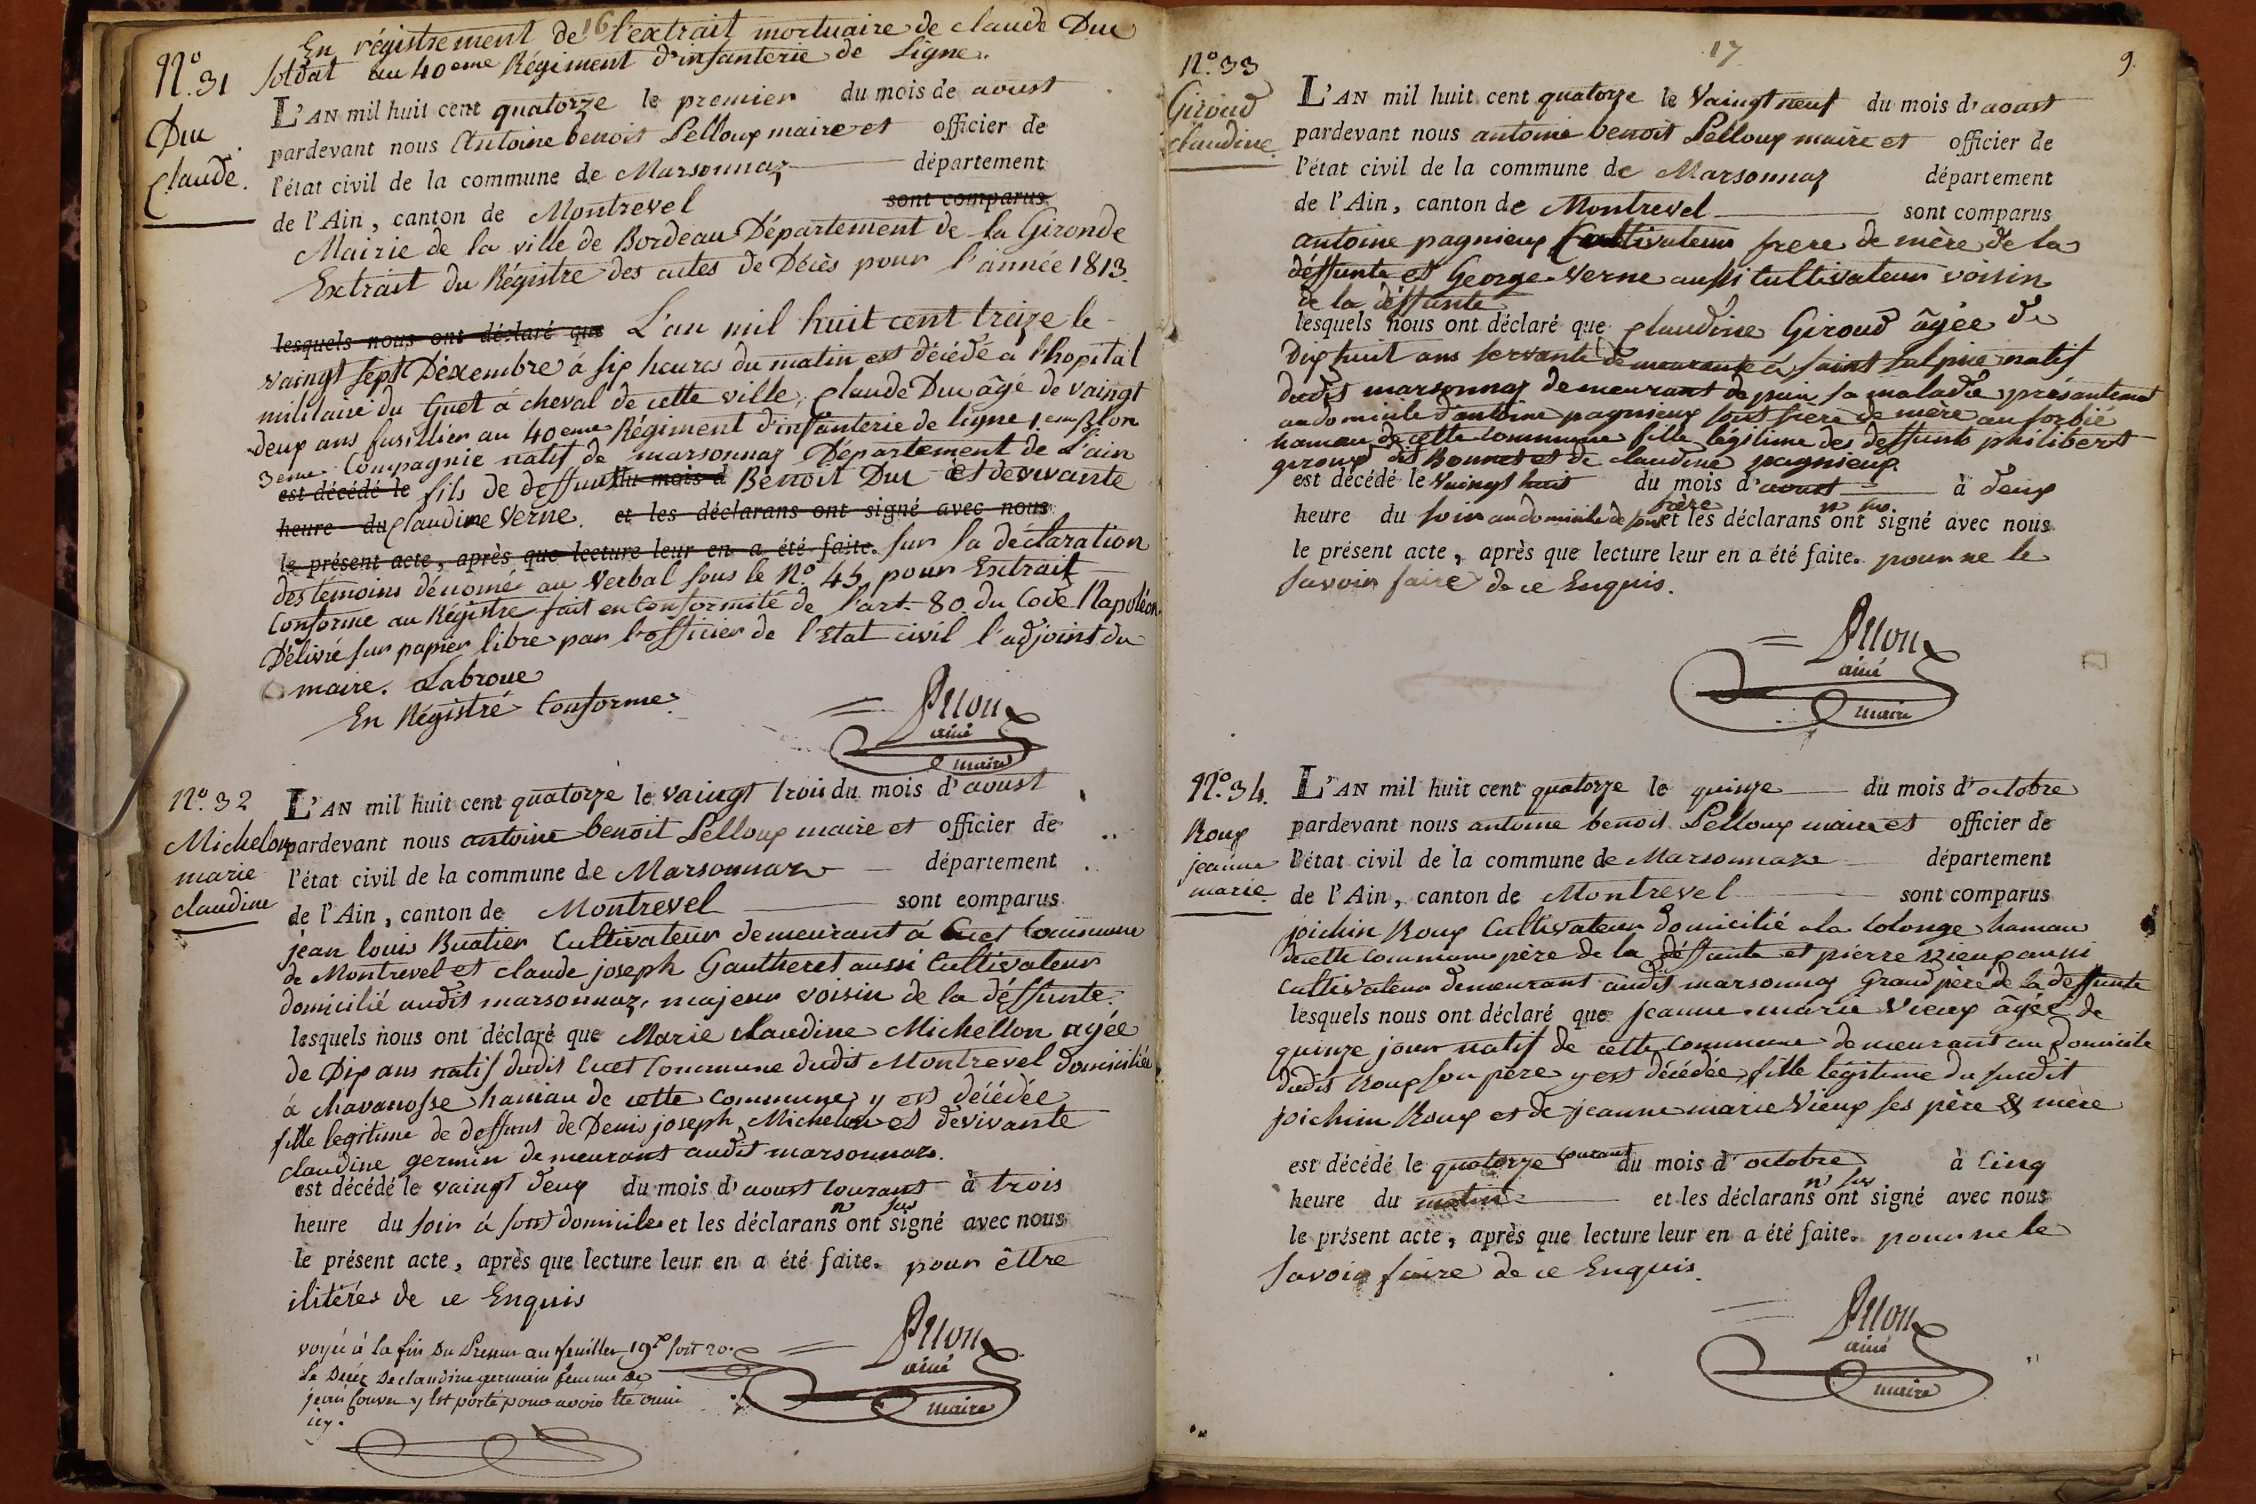 16
En régistrement de l'extrait mortuaire de claude Duc
Soldat au 40eme Régiment d'infanterie de Ligne.
N.o 31
Duc
Claude.
L'AN mil huit cent quatorze le premier du mois de aoust
pardevant nous Antoine benoit Pelloux maire et officier de
l'état civil de la commune de Marsonnaz département
de l'Ain, canton de Montrevel sont comparus
Mairie de la ville de Bordeau Département de la Gironde
Extrait du Régistre des actes de Décès pour l'année 1813.
lesquels nous ont déclaré que L'an mil huit cent treize le
vaingt sept Déxembre à six heures du matin est décédé à l'hopital
militaire du Guet à cheval de cette ville, Claude Duc âgé de vaingt
deux ans fusillier au 40eme Régiment d'infanterie de ligne 1.er Btlon
3eme Compagnie natif de marsonnaz Département de L'ain
est décédé le fils de deffunt du mois d Benoit Duc et de vivante
heure du Claudine Verne. et les déclarans ont signé avec nous
le présent acte, après que lecture leur en a été faite. sur la déclaration
des témoins dénomé au Verbal sous le N.o 45, pour Extrait
Conforme au Régistre fait en Conformité de l'art. 80 du Code Napoléon
Délivré sur papier libre par l'officier de l'Etat civil l'adjoint du
maire. Labroue
En Régistré Conforme.
Pelloux
ainé
maire
N.o 32
Michelon
marie
claudine
L'AN mil huit cent quatorze le vaingt trois du mois d'aoust
pardevant nous antoine benoit Pelloux maire et officier de
l'état civil de la commune de Marsonnaz département
de l'Ain, canton de Montrevel sont comparus
jean louis Buatier Cultivateur demeurant à Cuet Commune
de Montrevel et claude joseph Gautheret aussi Cultivateur
domicilié audit marsonnaz, majeur voisin de la déffunte.
lesquels nous ont déclaré que Marie claudine Michellon agée
de Dix ans natif dudit Cuet Commune dudit Montrevel domiciliée
à chavanosse hamau de cette commune, y est décédée
fille legitime de deffunt de Denis joseph Michelon et de vivante
claudine germin demeurant audit marsonnaz.
est décédé le vaingt deux du mois d'aoust courant à trois
heure du soir à sont domicile et les déclarans n'ont signé avec nous
le présent acte, après que lecture leur en a été faite. pour êttre
ilitérés de ce Enquis
voyés à la fin Du Presnt au feuillet 19e soit 20.
Le Décès De claudine germain femme de
jean y est porté pour avoir été omis
icy.
Pelloux
ainé
maire
17
9.
N.o 33
Giroud
claudine.
L'AN mil huit cent quatorze le Vaingt neuf du mois d'aoust
pardevant nous antoine benoit Pelloux maire et officier de
l'état civil de la commune de Marsonnaz département
de l'Ain, canton de Montrevel sont comparus
antoine pagnieux Cultivateur frere de mère de la
déffunte et George Verne aussi Cultivateur voisin
de la déffunte
lesquels nous ont déclaré que Claudine Giroud âgée de
Dix huit ans servante demeurante à saint Sulpice natif
dudit marsonnaz demeurant depuis sa maladie présentement
au domicile d'antoine pagnieux sont frère de mère au sorbié
hamau de cette commune fille légitime des deffunts philibert
giroux dit Bonnet et de claudine pagnieux.
est décédé le Vaingt huit du mois d'aoust à deux
heure du soir au domicile de sont frère et les déclarans n'ont signé avec nous
le présent acte, après que lecture leur en a été faite. pour ne le
savoir faire de ce Enquis.
Pelloux
ainé
maire
N.o 34.
Roux
jeanne
marie.
L'AN mil huit cent quatorze le quinze du mois d'octobre
pardevant nous antoine benoit Pelloux maire et officier de
l'état civil de la commune de Marsonnaz département
de l'Ain, canton de Montrevel sont comparus
joichin Roux Cultivateur domicilié a la Colonge hamau
de cette Commune père de la déffunte et pierre Vieux aussi
cultivateur demeurant audit marsonnaz Grand père de la deffunte
lesquels nous ont déclaré que jeanne marie Vieux âgée de
quinze jour natif de cette commune demeurant au domicile
dudit Roux son père y est décédée, fille legitime du susdit
joichim Roux et de jeanne marie Vieux ses père & mère
est décédé le quatorze courant du mois d'octobre à Cinq
heure du matin et les déclarans n'ont signé avec nous
le présent acte, après que lecture leur en a été faite. pour ne le
savoir faire de ce Enquis.
Pelloux
ainé
maire